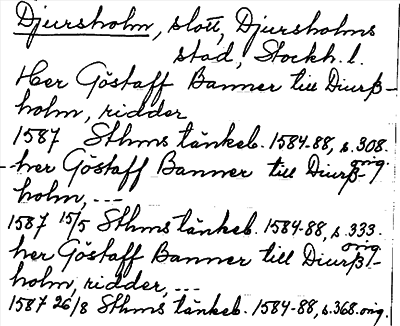 Djursholm, slott, Djursholms
stad, Stockh. l.
Her Göstaff Banner till Diurß-
holm, ridder
1587 Sthms tänkeb. 1584-88, s. 308.
orig.
her Göstaff Banner till Diurß-
holm, ---
1587 15/5 Sthms tänkeb. 1584-88, s. 333.
orig.
her Göstaff Banner till Diurß-
holm, ridder, ---
1587 26/8 Sthms tänkeb. 1584-88, s. 368. orig.